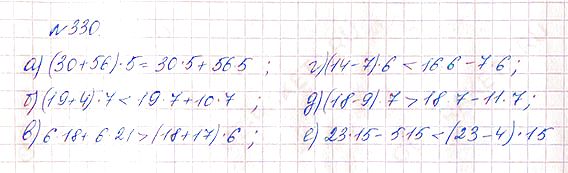 №330.
а) (30+56)·5=30·5+56·5 ;
г) (14-7)·6 < 16·6-7·6 ;
б) (19+4)·7 < 19·7+10·7 ;
д) (18-9)·7 > 18·7-11·7 ;
в) 6·18+6·21 > (18+17)·6 ;
е) 23·15-5·15 < (23-4)·15